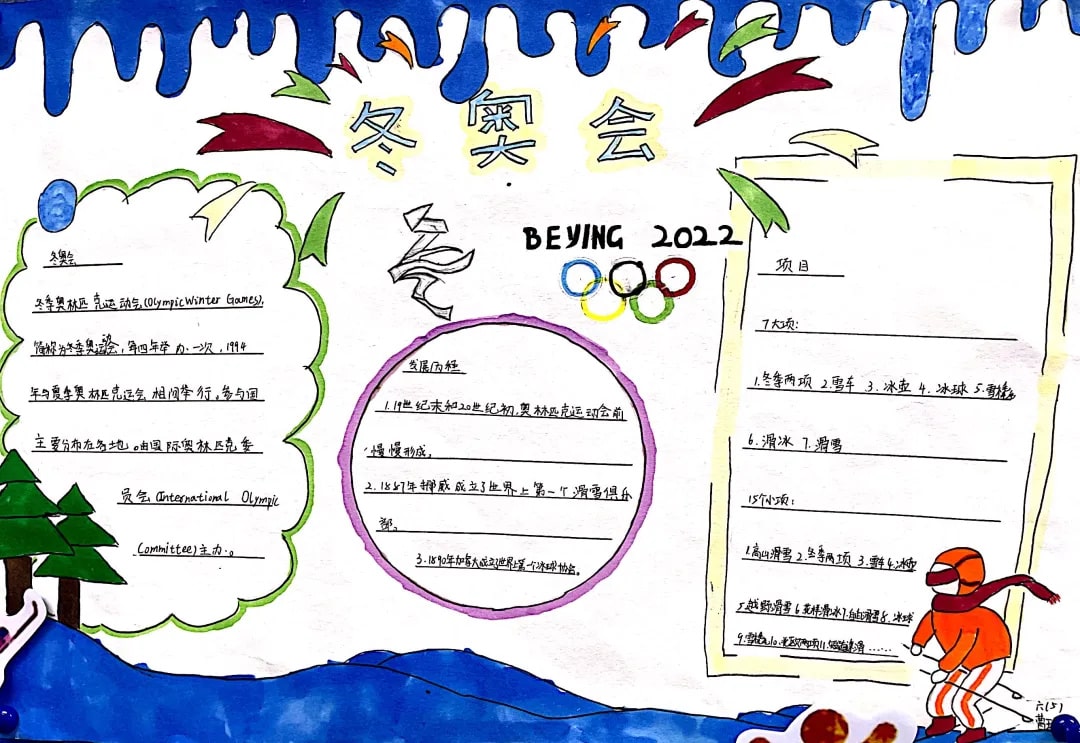 冬奥会
BEYING 2022
冬奥会
冬季奥林匹克运动会(Olympic Winter Games),
简称为冬季奥运会,每四年举办一次,1994
年与夏季奥林匹克运会相间举行,参与国
主要分布在各地。由国际奥林匹克委
员会(International Olympic
Committee)主办。
发展历程
1.19世纪末和20世纪初,奥林匹克运动会前
慢慢形成,
2.1887年挪威成立了世界上第一个滑雪俱乐
部。
3.1890年加拿大成立世界上第一个冰球协会。
项目
7大项:
1.冬季两项 2.雪车 3.冰壶 4.冰球 5.雪橇
6.滑冰 7.滑雪
15个小项:
1.高山滑雪 2.冬季两项 3.雪车 4.冰壶
5.越野滑雪 6.花样滑冰 7.自由滑雪 8.冰球
9.雪橇 10.北欧两项 11.短道速滑……
六(5)
曹